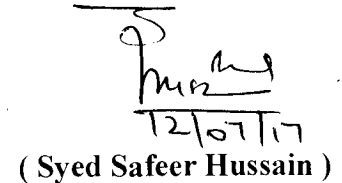 12/07/17
( Syed Safeer Hussain )